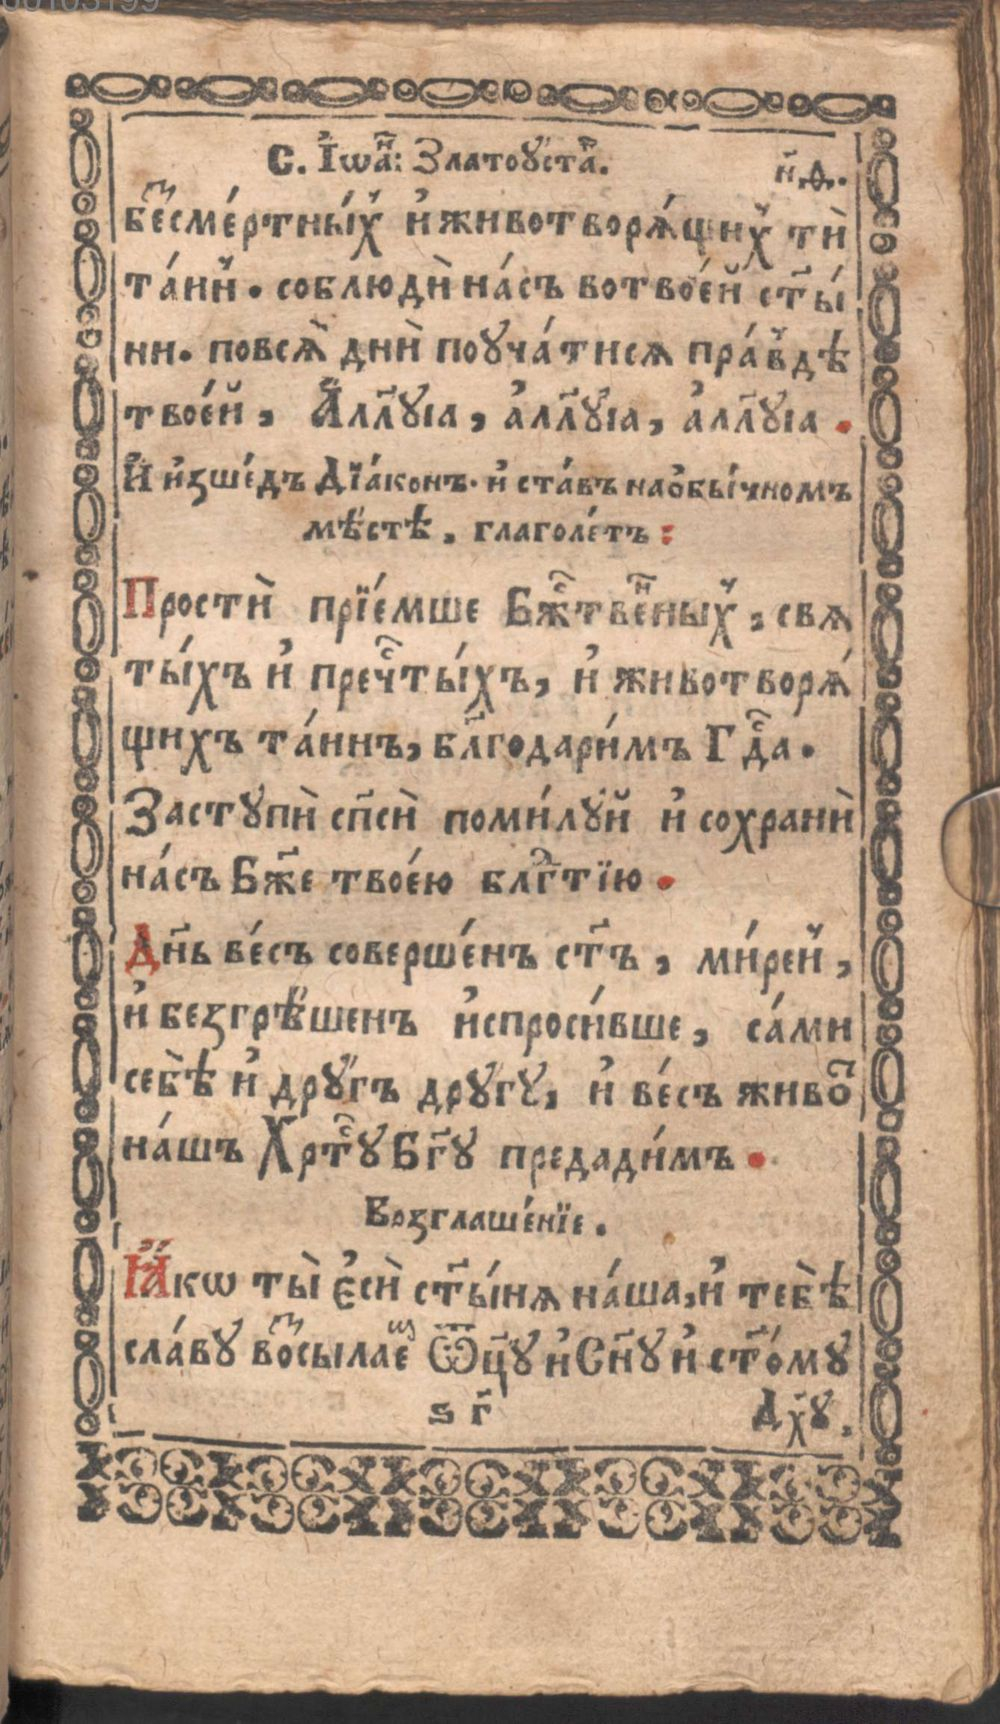 С. І҆ѡа҃н: Златоꙋстаⷢ҇.
н҃ѳ.
бес̾ме́ртны́х̾ и҆ животворѧ́щих̾ тѝ
та́ин̾. соблюдѝ на́съ вотвое́й ст҃ы́
ни. повсѧ̀ днѝ поꙋча́тисѧ пра́вдѣ
твое́й, А҆лл҃ꙋіа, а҆лл҃ꙋіа, а҆лл҃ꙋіа.
И҆ и҆зше́дъ Дїа́конъ. и҆ ста́въ наѻбы́чномъ
мѣ́стѣ, глаголе́тъ:
Простѝ прїе́мше Бж҃твен҃ных̾, свѧ
ты́хъ и҆ преч҃ты́хъ, и҆ животворѧ́
щихъ та́инъ, бл҃годари́мъ Гд҃а.
Застꙋпѝ сп҃сѝ поми́лꙋй и҆ сохранѝ
на́съ Бж҃е твое́ю блг҃тїю.
Дн҃ь ве́съ соверше́нъ ст҃ъ, ми́рен̾,
и҆ безгрѣ́шенъ и҆спроси́вше, са́ми
себѣ̀ и҆ дрꙋ́гъ дрꙋ́гꙋ, и҆ ве́съ живоⷮ
на́шъ Хрт҃ꙋ Бг҃ꙋ предади́мъ.
Возглаше́нїе.
Ꙗ҆́кѡ ты̀ є҆сѝ ст҃ы́нѧ на́ша, и҆ тебѣ̀
сла́вꙋ воⷥсылаеⷨ Ѿц҃ꙋ и҆ Сн҃ꙋ и҆ ст҃о́мꙋ
ѕ г҃
Дх҃ꙋ.